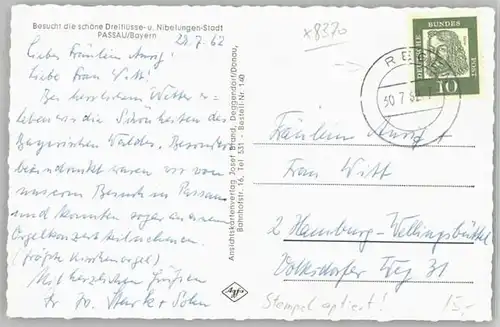 Besucht die schöne Dreiflüsse- u. Nibelungen-Stadt
PASSAU/Bayern
29.7.62
Liebes Fräulein
Liebe Frau Witt!
Bei herrlichem Wetter er=
leben wir die Schönheiten des
Bayrischen Waldes. Besonders
beeindruckt waren wir von
unserem Besuch in Passau
und konnten sogar an einem
Orgelkonzert teilnehmen.
(größte Kirchenorgel)
Mit herzlichen Grüßen
Ihr
Ansichtskartenverlag Josef Brand, Deggendorf/Donau,
Bahnhofstr. 16, Tel 531 - Bestell Nr. 140
Agfa
x8370
DEUTSCHE BUNDESPOST
10
REGEN
30.7.62
Fräulein
Frau Witt
2 Hamburg-Wellingsbüttel
Volksdorfer Weg 31
Stempel aptiert!
15,-